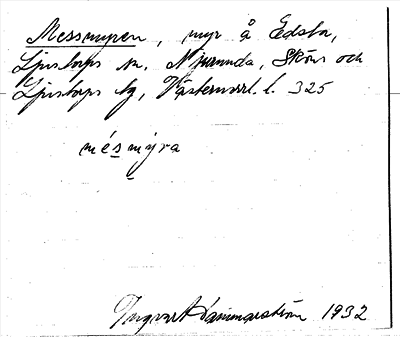 Messmyren, myr å Edsta,
Ljustorps sn. Njurunda, Sköns och
Ljustorps tg, Västernorrl. l. 325
mésmýra
Ingvar Hammarström 1932